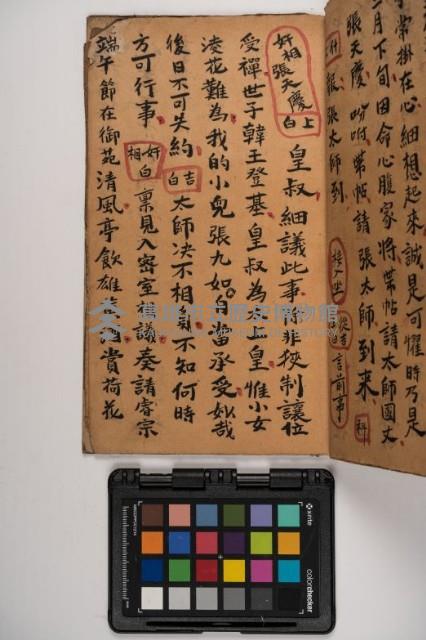 常掛在心細想起來誠是可懼時乃是
月下旬田命心腹家將帶帖請太師國丈
張天慶吩咐帶帖請張太師到來科
報張太師到
從吉言前事
奸相張天慶上白皇叔細議此事非挾制讓位
受禪世子韓王登基皇叔為上皇惟小女
凌花難為我的小兒張九如
當承受如哉
後日不可失約吉白太師決不相負不知何時
方可行事奸相白稟見入密室
議奏請睿宗
端午節在御苑清風亭飲雄
賞荷花
x-rite
colorchecker